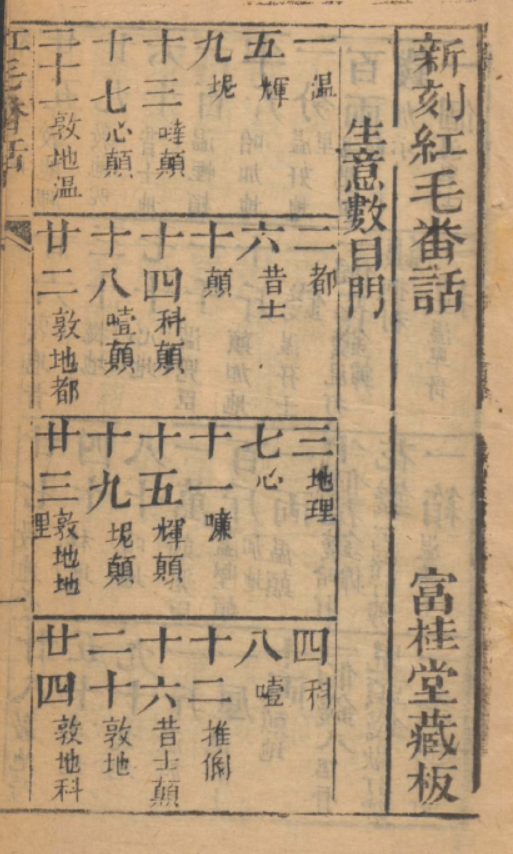 新刻紅毛番話
富桂堂藏板
生意數目門
一 温
二 都
三 地理
四 科
五 輝
六 昔士
七 心
八 噎
九 坭
十 顛
十一 㗒
十二
十三 噠顛
十四 科顛
十五 輝顛
十六 昔士顛
十七 心顛
十八 噎顛
十九 坭顛
二十 敦地
二十一 敦地温
廿二 敦地都
廿三 敦地地理
廿四 敦地科
紅毛番話
一